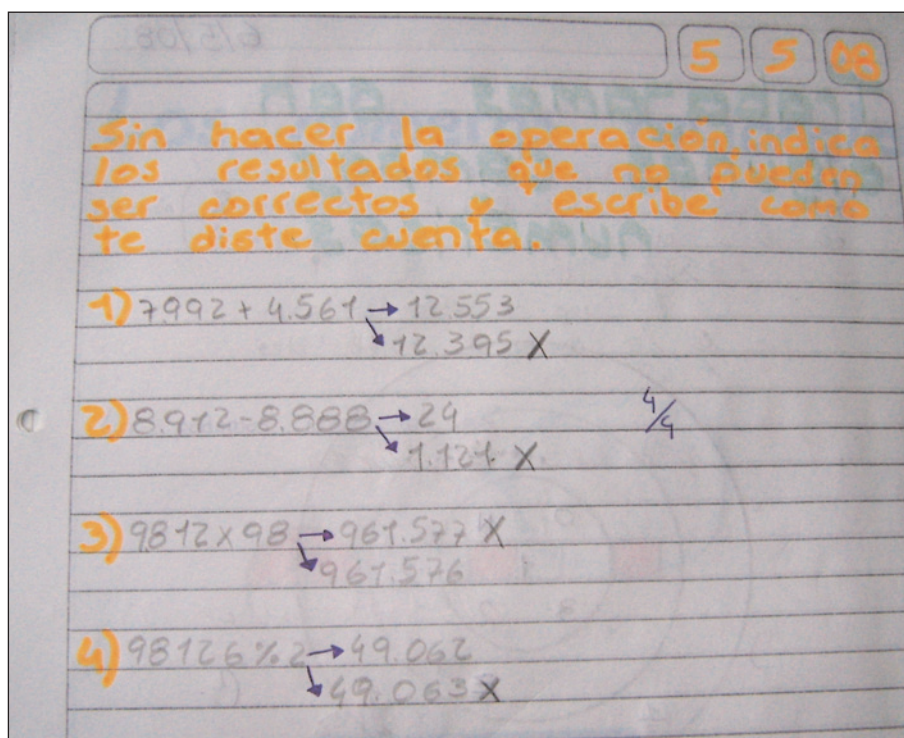 5 5 08
Sin hacer la operación, indica
los resultados que no pueden
ser correctos y escribe como
te diste cuenta.
1) 7992 + 4.561 → 12.553
↘ 12.395 X
2) 8.912 - 8.888 → 24
↘ 1.121 X
4/4
3) 9812 x 98 → 961.577 X
↘ 961.576
4) 98126 % 2 → 49.062
↘ 49.063 X